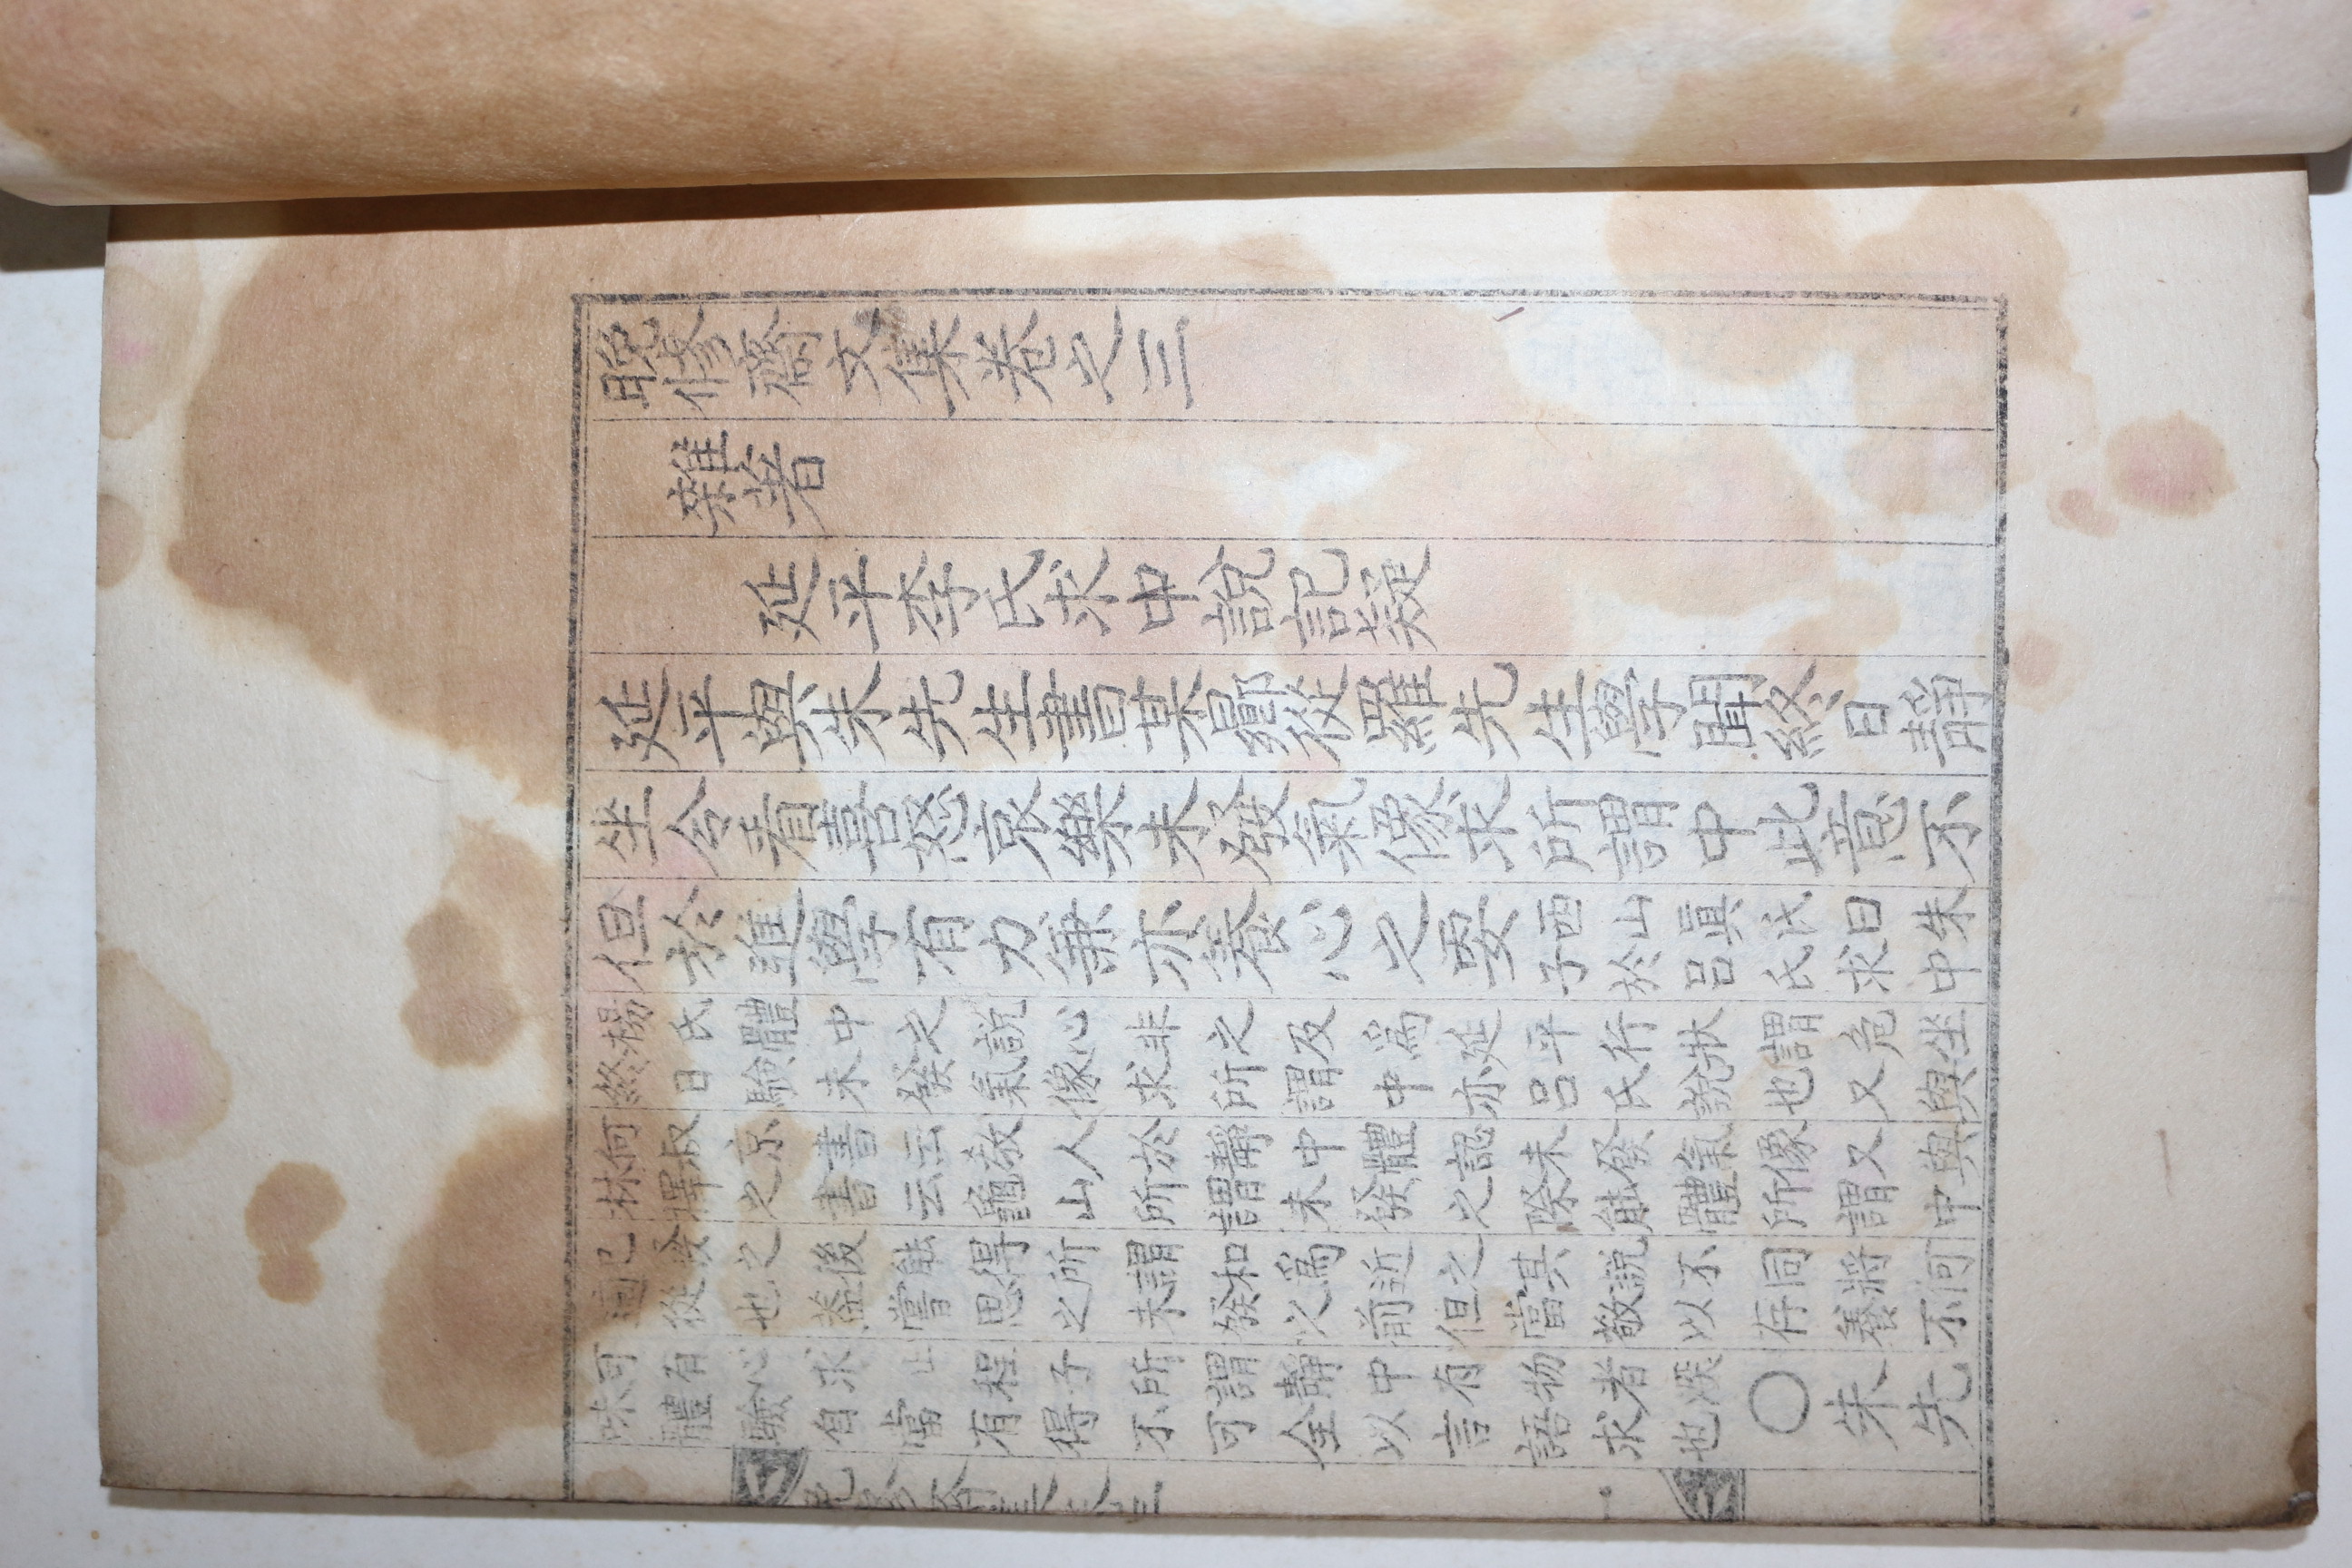 晩修齋文集卷之三
雜著
延平李氏求中說記疑
延平與朱先生書某曏從羅先生學聞終日靜
坐令看喜怒哀樂未發氣像求所謂中此意不
但於進學有力兼亦養心之要
西山眞氏曰朱
子於呂氏求中
楊氏體中之說心非之及爲延平行狀謂危坐
終日驗未發氣像求所謂中亦呂氏說也又與
何叔京書云敎人於靜中體認未發氣像又與
林擇之書云龜山所謂未發之際能體所謂中
已發之後能得所謂和爲近之其說不同將何
適從也蓋嘗思之未發之前但當敬以存養不
可有心求止程子所謂靜中有物者深
味體驗自當有得不可全以言語求也
○朱先